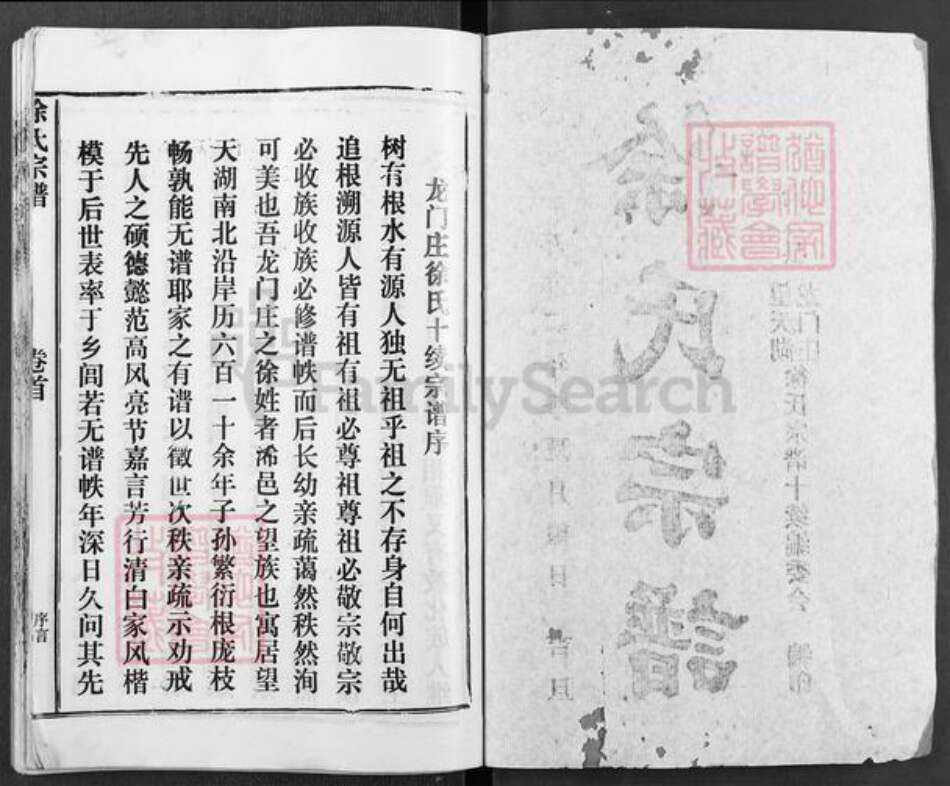 龙门庄徐氏十续宗谱序
树有根水有源人独无祖乎祖之不存身自何出哉
追根溯源人皆有祖有祖必尊祖尊祖必敬宗敬宗
必收族收族必修谱帙而后长幼亲疏蔼然秩然洵
可美也吾龙门庄之徐姓者浠邑之望族也寓居望
天湖南北沿岸历六百一十余年子孙繁衍根庞枝
畅孰能无谱耶家之有谱以徵世次秩亲疏示劝戒
先人之硕德懿范高风亮节嘉言芳行清白家风楷
模于后世表率于乡闾若无谱帙年深日久问其先
徐氏宗谱
卷首
序言
徐氏宗譜
龙门庄
望天湖
徐氏宗谱十续编委会
编印
FamilySearch